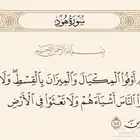 سُورَةُ هُودٍ
بِسْمِ اللَّهِ الرَّحْمَٰنِ الرَّحِيمِ
أَوْفُوا الْمِكْيَالَ وَالْمِيزَانَ بِالْقِسْطِ ۖ وَلَا
النَّاسَ أَشْيَاءَهُمْ وَلَا تَعْثَوْا فِي الْأَرْضِ
٨٥